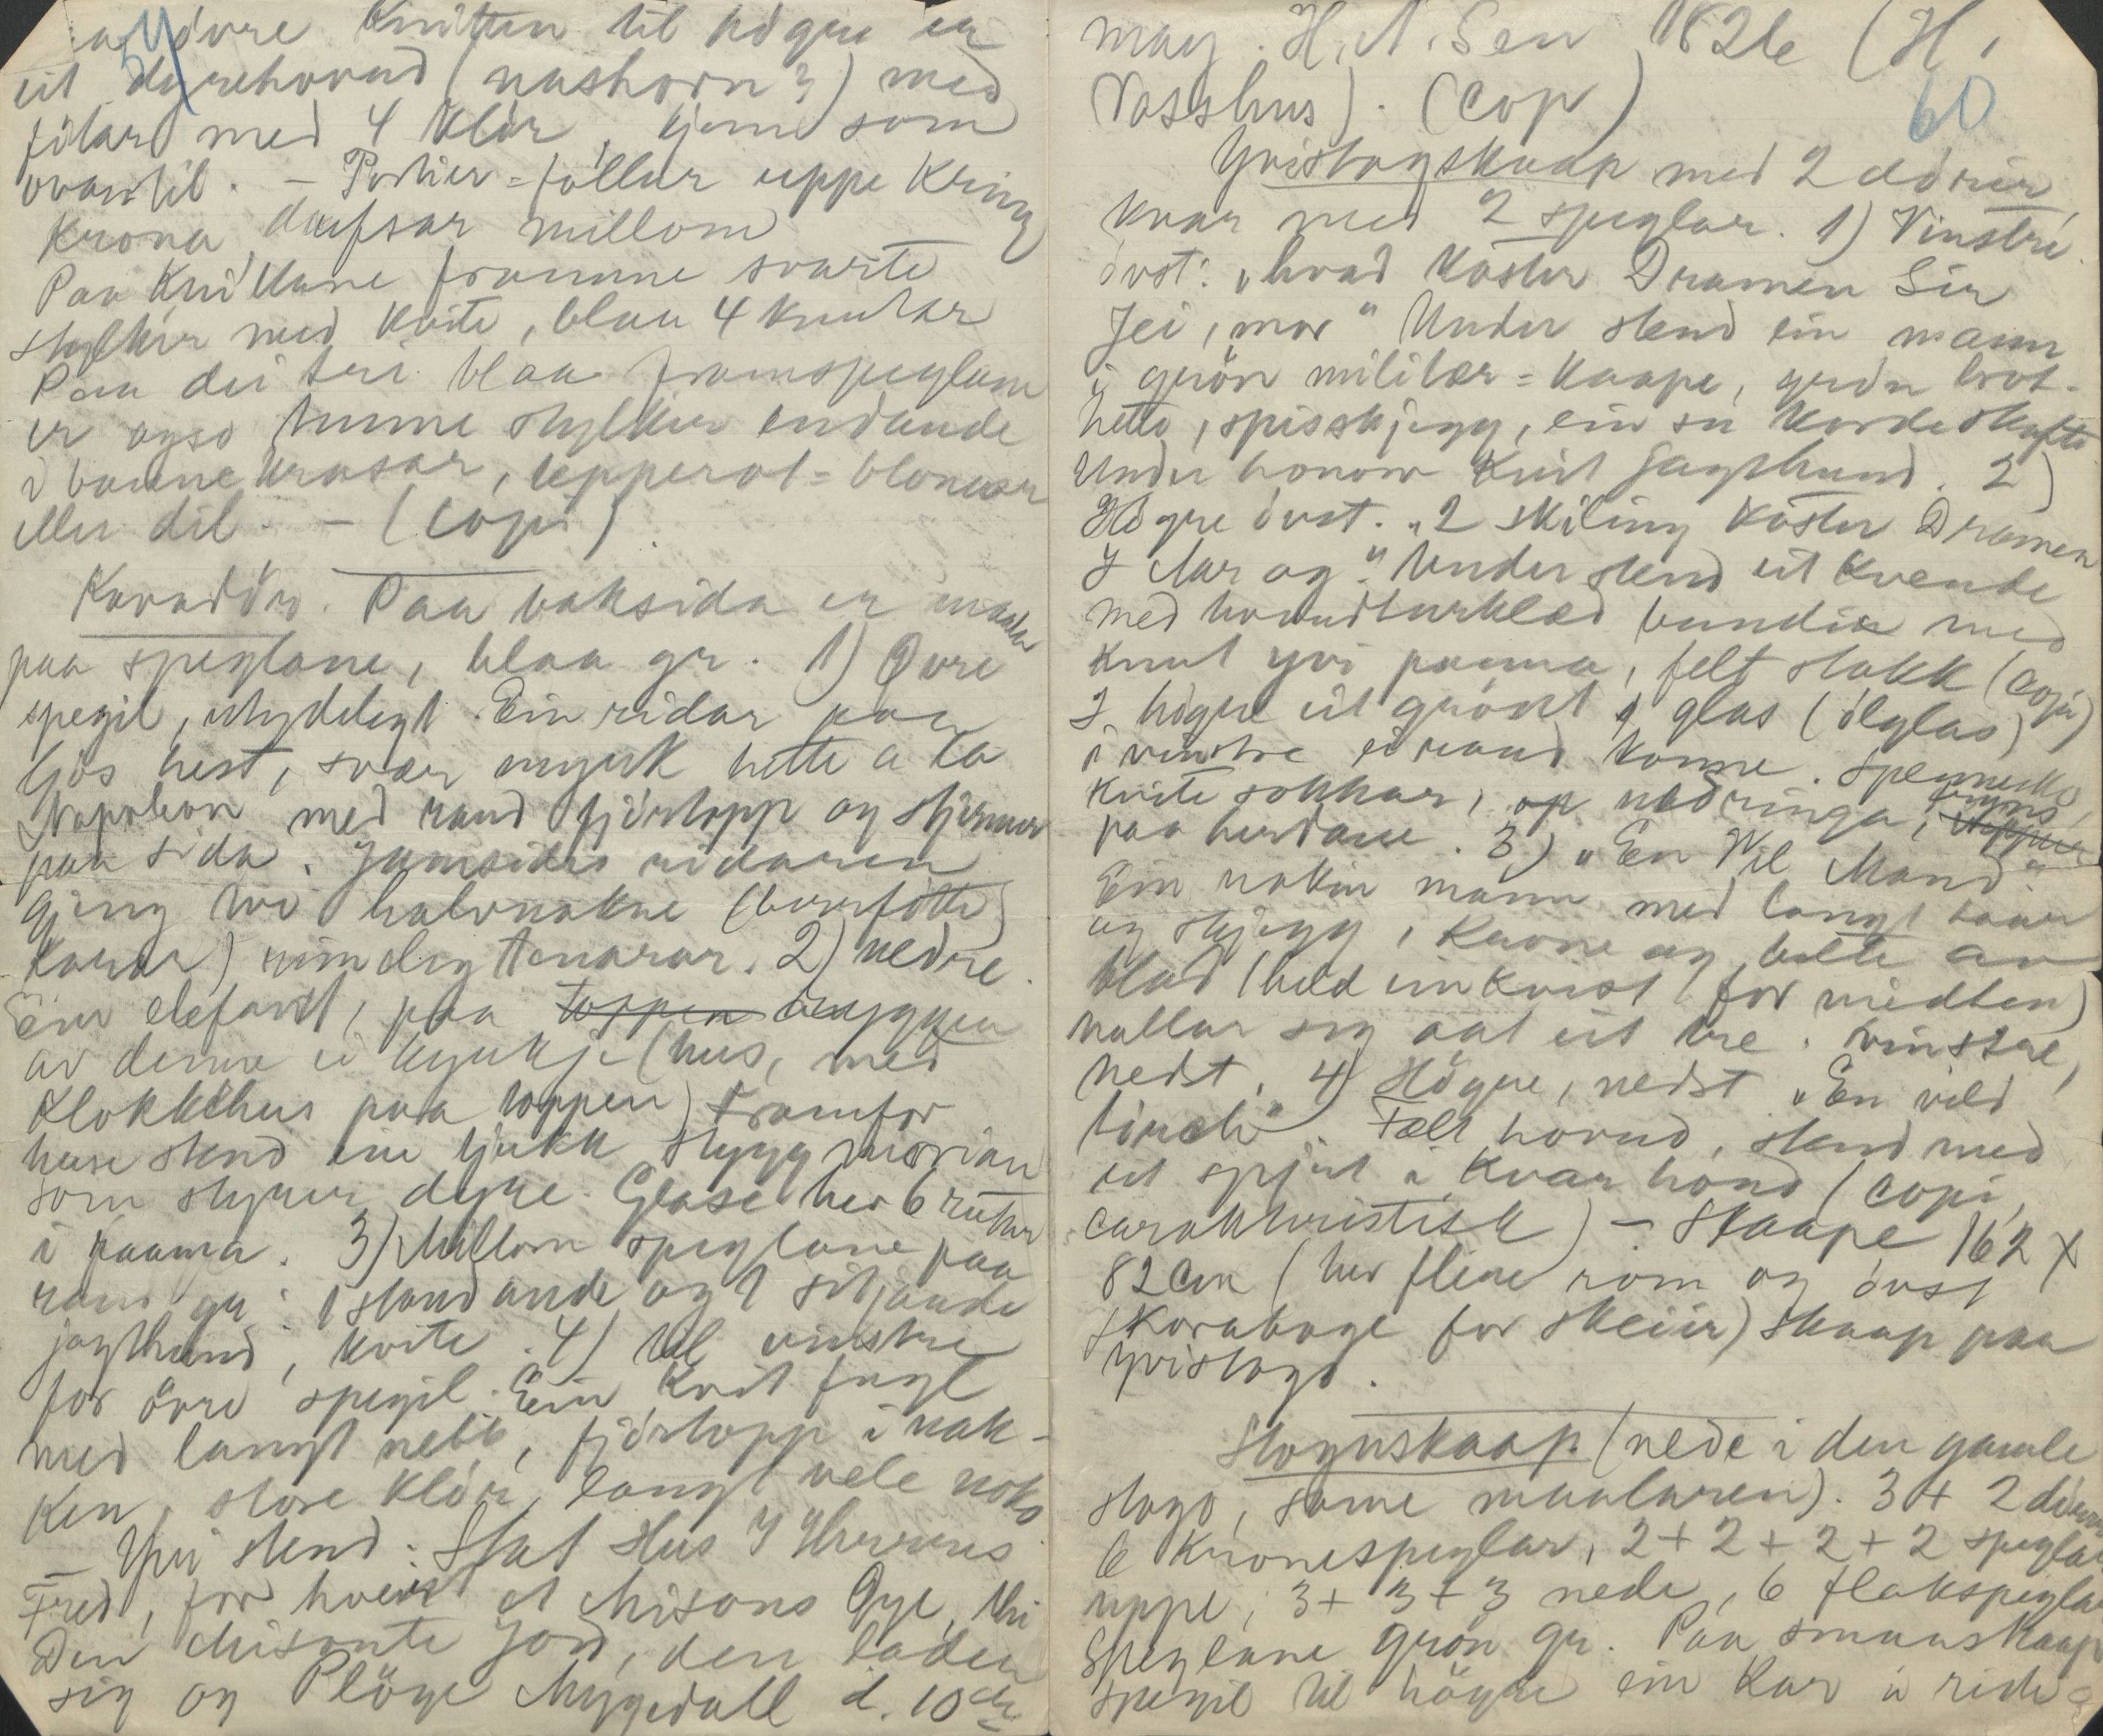 59
øvre knutten til högre er
eit dyrehovud (nashorn?) med
fötar med 4 klör, kjem som
ovantil. – Portier-fallar uppe kring
Krona, duskar millom
Paa knillane framme svarte
stylkar med kvite, blaa 4 knutar
Paa dei tri blaa framspeglane
er ogso tunne stylkar endande
i brune krasar, epperot-blomar
eller dil. – (copi).
Kovadör. Paa baksida er maala
paa speglane, blaa gr. 1) Øvre
spegil, utydelegt. Ein ridar paa
ljös hest, svær mjuk hette a la
Napoleon med raud fjörtopp og stjernur
paa sida. Jamsides ridaren
gjeng tvo halvnakne (berrfötte)
karar) rimeleg tenarar. 2) nedre
Ein elefant, paa toppen ryggen
av denne ei kyrkje (hus, med
klokkehus paa toppen) Framfor
huse stend ein tjukk stygg morian
som styrer dyre. Glase hev 6 rutur
i raama. 3) Millom speglane paa
raud gr. 1 standande og 1 sitjande
jagthund, kvite. 4) til vinstre
for övre spegil. Ein kvit fugl
med langt nebb, fjörtopp i nak-
ken, store klör, langt vele noko
– Yvi stend: Skat Hus I Herrens
Fred, for hvert et Misons Øye, Thi
Den Misonte Jord, den laden
sig og Plöye Mygedall d. 10de
may. H. N. Sen 1826 (H.
Vasshus). (Cop)
60
Yvistogskaap med 2 dörer,
kvar med 2 speglar. 1) Vinstre
övst: "hvad Köster Dramen Sir
Jei, mor" Under stend ein mann
i grön militær-kaape, grön brot-
hette, spisskjegg, ein ser kordeskafte
Under honom kvit Jagthund. 2)
Högre övst. "2 skiling Köster Dramen
I Mar og" Under stend eit kvende
med hovudturklæd bundin med
knut yvi panna, felt stakk (copi)
I högre eit grönt glas (ölglas)
i vinstre ei raud konne. spennesko,
kvite sokkar, op nedringa, bryms
paa herdane. 3) "En Vil Mand"
Ein nakin mann med langt haar
og skjegg, Krone og belte av
blad (held ein kvist for midten)
hallar sig aat eit tre. Vinstre,
nedst. 4) Högre, nedst "En vild
". Fælt hovud, stend med
eit spjut i kvar hond (copi,
carakteristisk) – Skaape 162 x
82 cm (hev fleire rom og övst
skoraboge for skeier) skaap paa
Yvistogo.
Stogukaap (nede i den gamle
stogo, same maalaren). 3 + 2 dörer
6 Kronespeglar, 2 + 2 + 2 + 2 speglar
uppe, 3 + 3 + 3 nede, 6 flakspeglar
Speglane grön gr. Paa smaaskaap
spegil til högre ein kar i ride